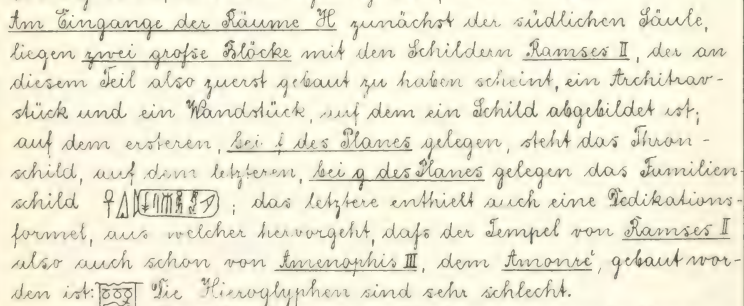 Am Eingange der Räume H zunächst der südlichen Säule,
liegen zwei große Blöcke mit den Schildern Ramses II, der an
diesem Teil also zuerst gebaut zu haben scheint, ein Architrav-
stück und ein Wandstück, auf dem ein Schild abgebildet ist;
auf dem ersteren, bei f des Planes gelegen, steht das Thron-
schild, auf dem letzteren, bei g des Planes gelegen das Familien-
schild ; das letztere enthielt auch eine Dedikations-
formel, aus welcher hervorgeht, daß der Tempel von Ramses II
also auch schon von Amenophis III, dem Amonré, gebaut wor-
den ist: Die Hieroglyphen sind sehr schlecht.